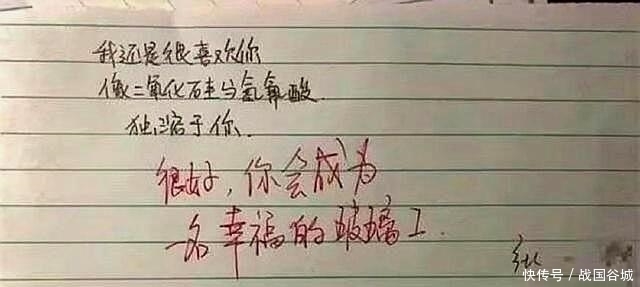 我还是很喜欢你
像二氧化硅与氢氟酸.
独溶于你.
很好,你会成为
一名幸福的玻璃工.
快传号/战国谷城